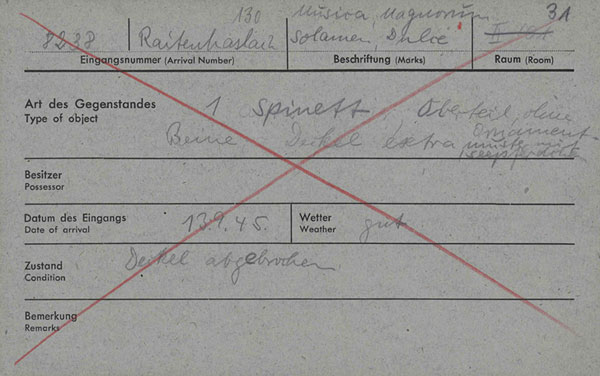 130 Musica, Magnorum 31
8238 Raitenhaslach Solamen, Dulce
Eingangsnummer (Arrival Number) Beschriftung (Marks) Raum (Room)
Art des Gegenstandes 1 Spinett, Oberteil, ohne
Type of object Beine Deckel extra Ornament-
muster mit
Seepferdchen
Besitzer
Possessor
Datum des Eingangs 13.9.45. Wetter gut
Date of arrival Weather
Zustand Deckel abgebrochen
Condition
Bemerkung
Remarks